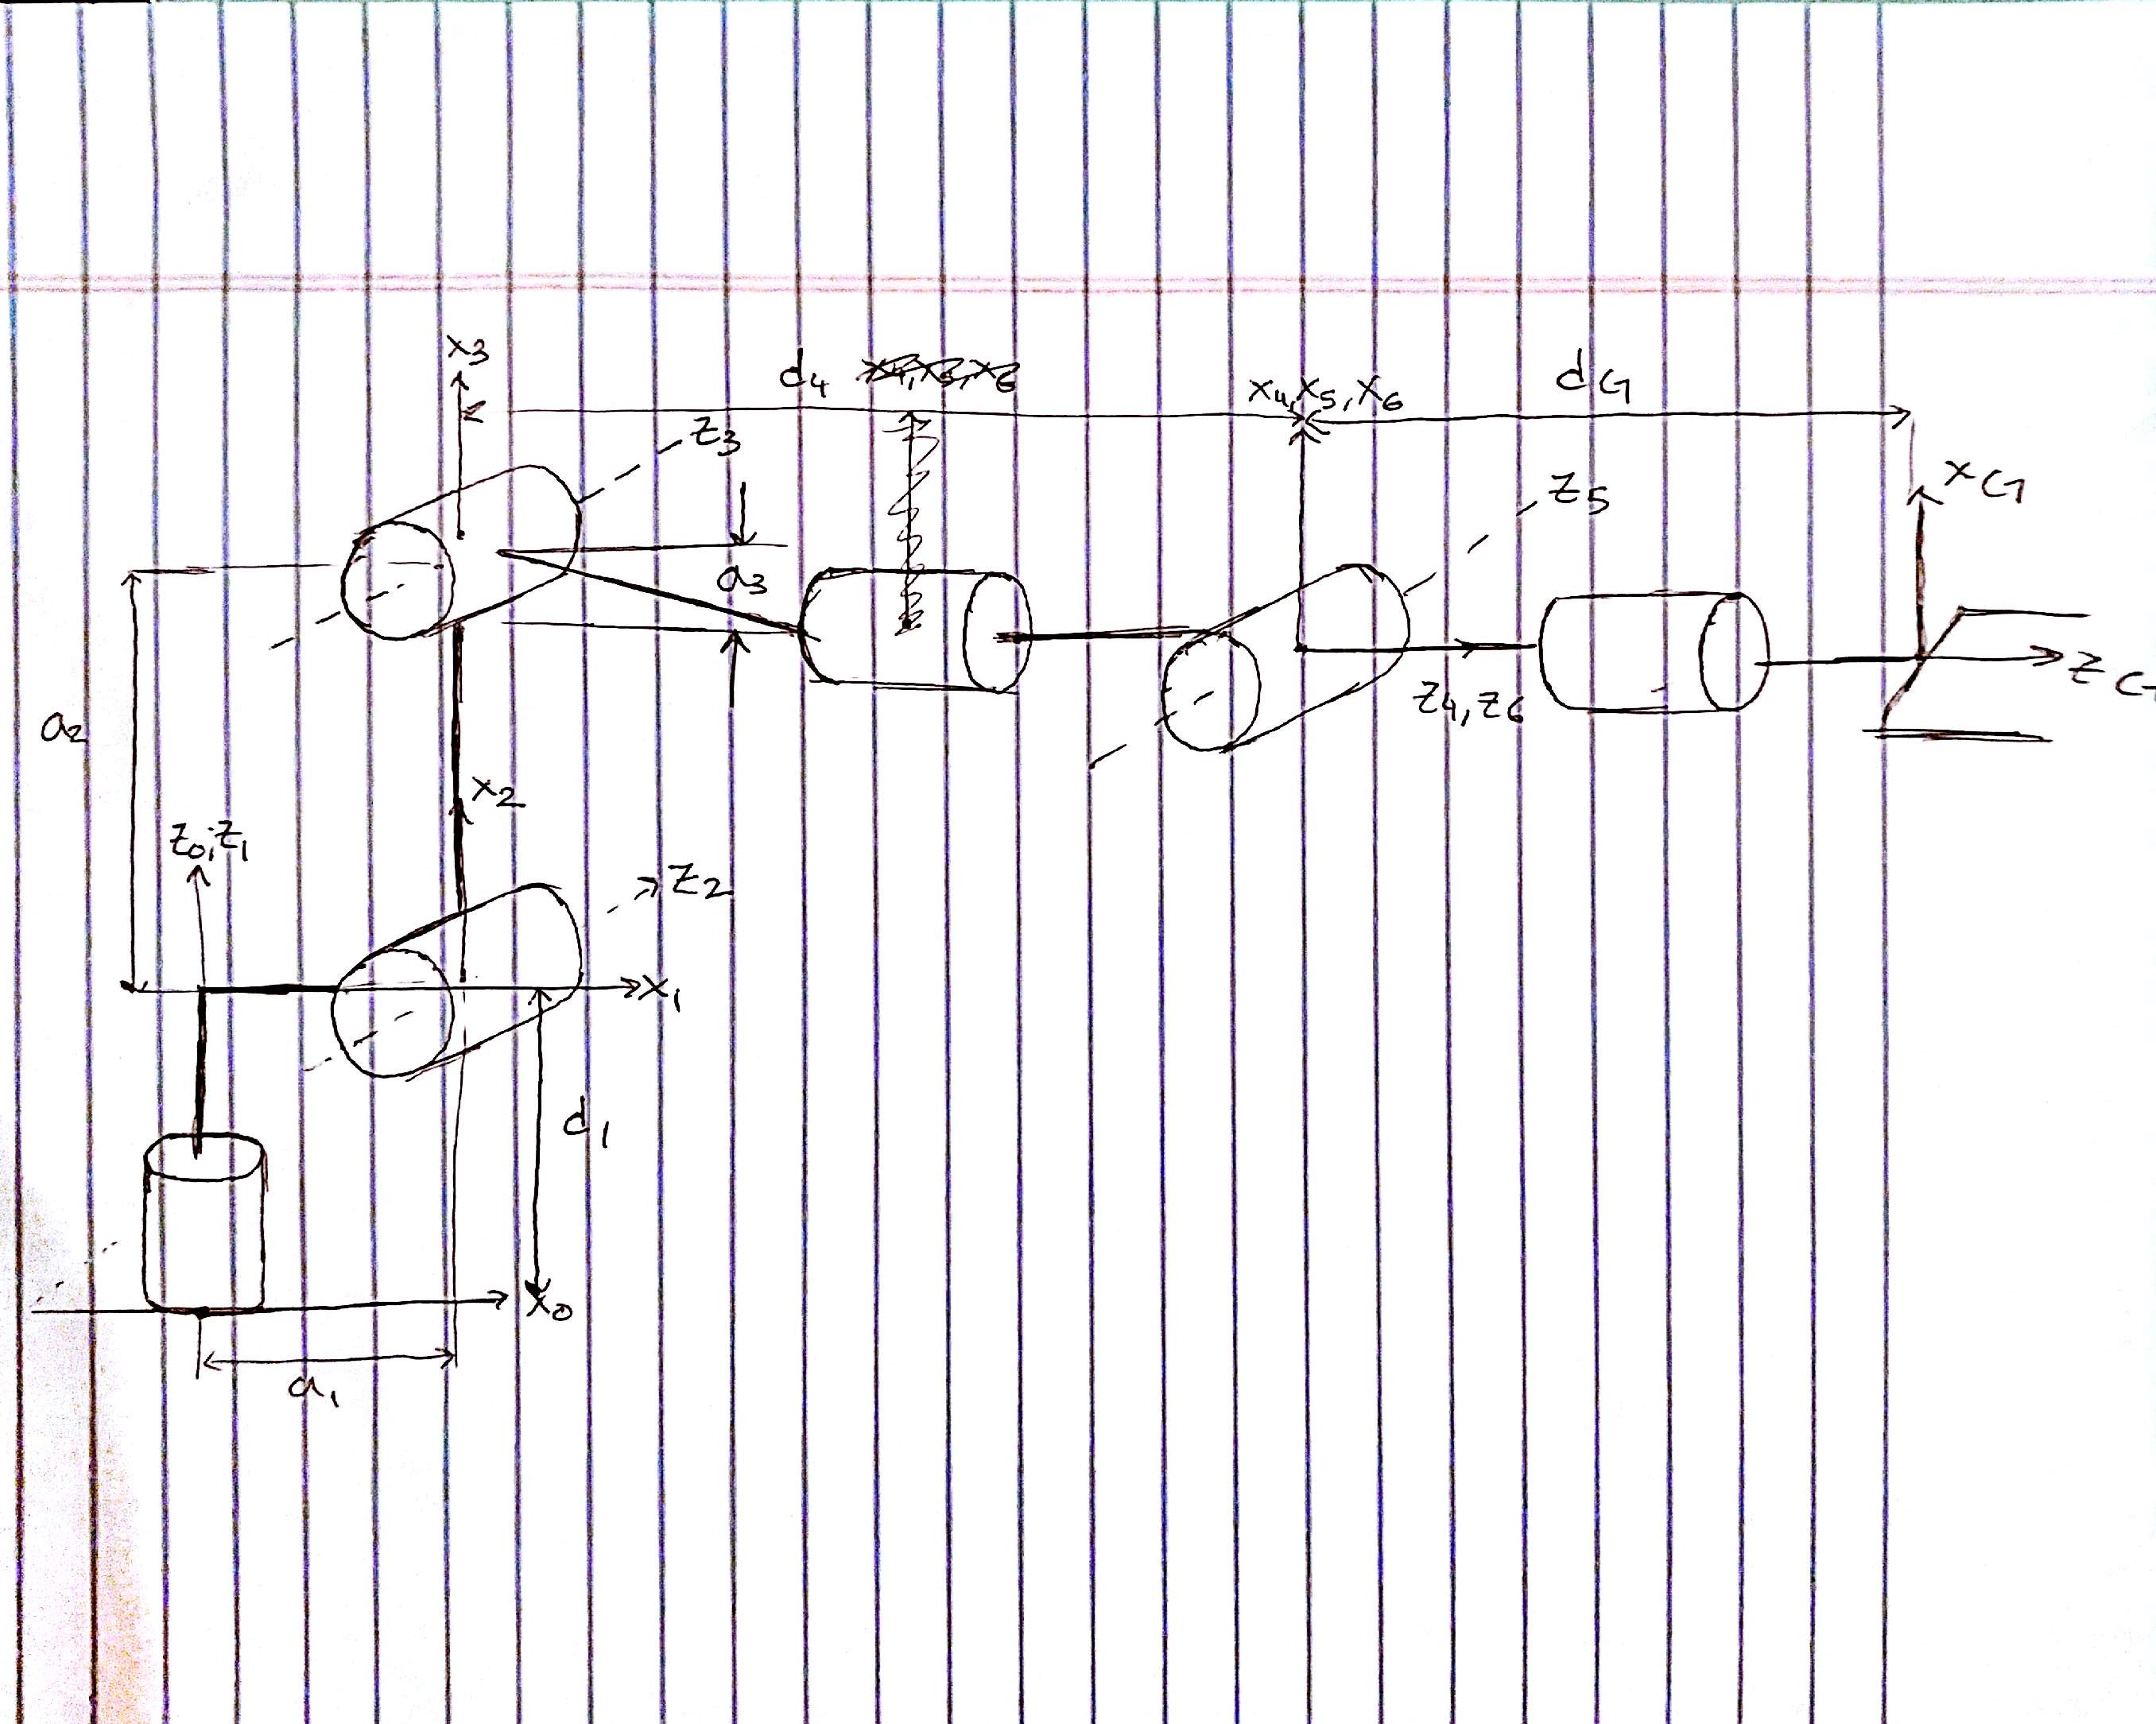 x3
d4
x4,x5,x6
dG
z3
xG
z5
a3
z4,z6
zG
a2
x2
z0,z1
z2
x1
d1
x0
a1